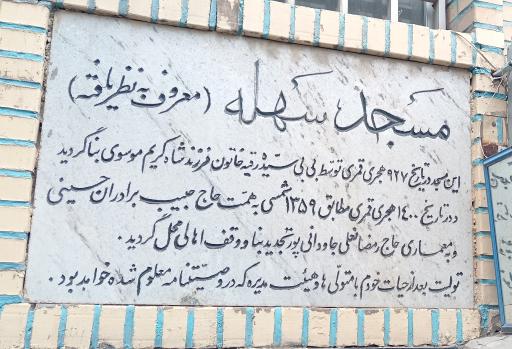 مسجد سهله (معروف به نظر یافته)
این مسجد در تاریخ ۹۲۷ هجری قمری توسط بی بی سیده رقیه خاتون فرزند شاه کریم موسوی بنا گردید
و در تاریخ ۱۴۰۰ هجری قمری مطابق ۱۳۵۹ شمسی به همت حاج حبیب برادران حسینی
و به معماری حاج رمضانعلی جاودانی پور تجدید بنا و وقف اهالی محل گردید.
تولیت بعد از حیات خودم با متولی ها و هیئت مدیره که در وصیتنامه معلوم شده خواهد بود.